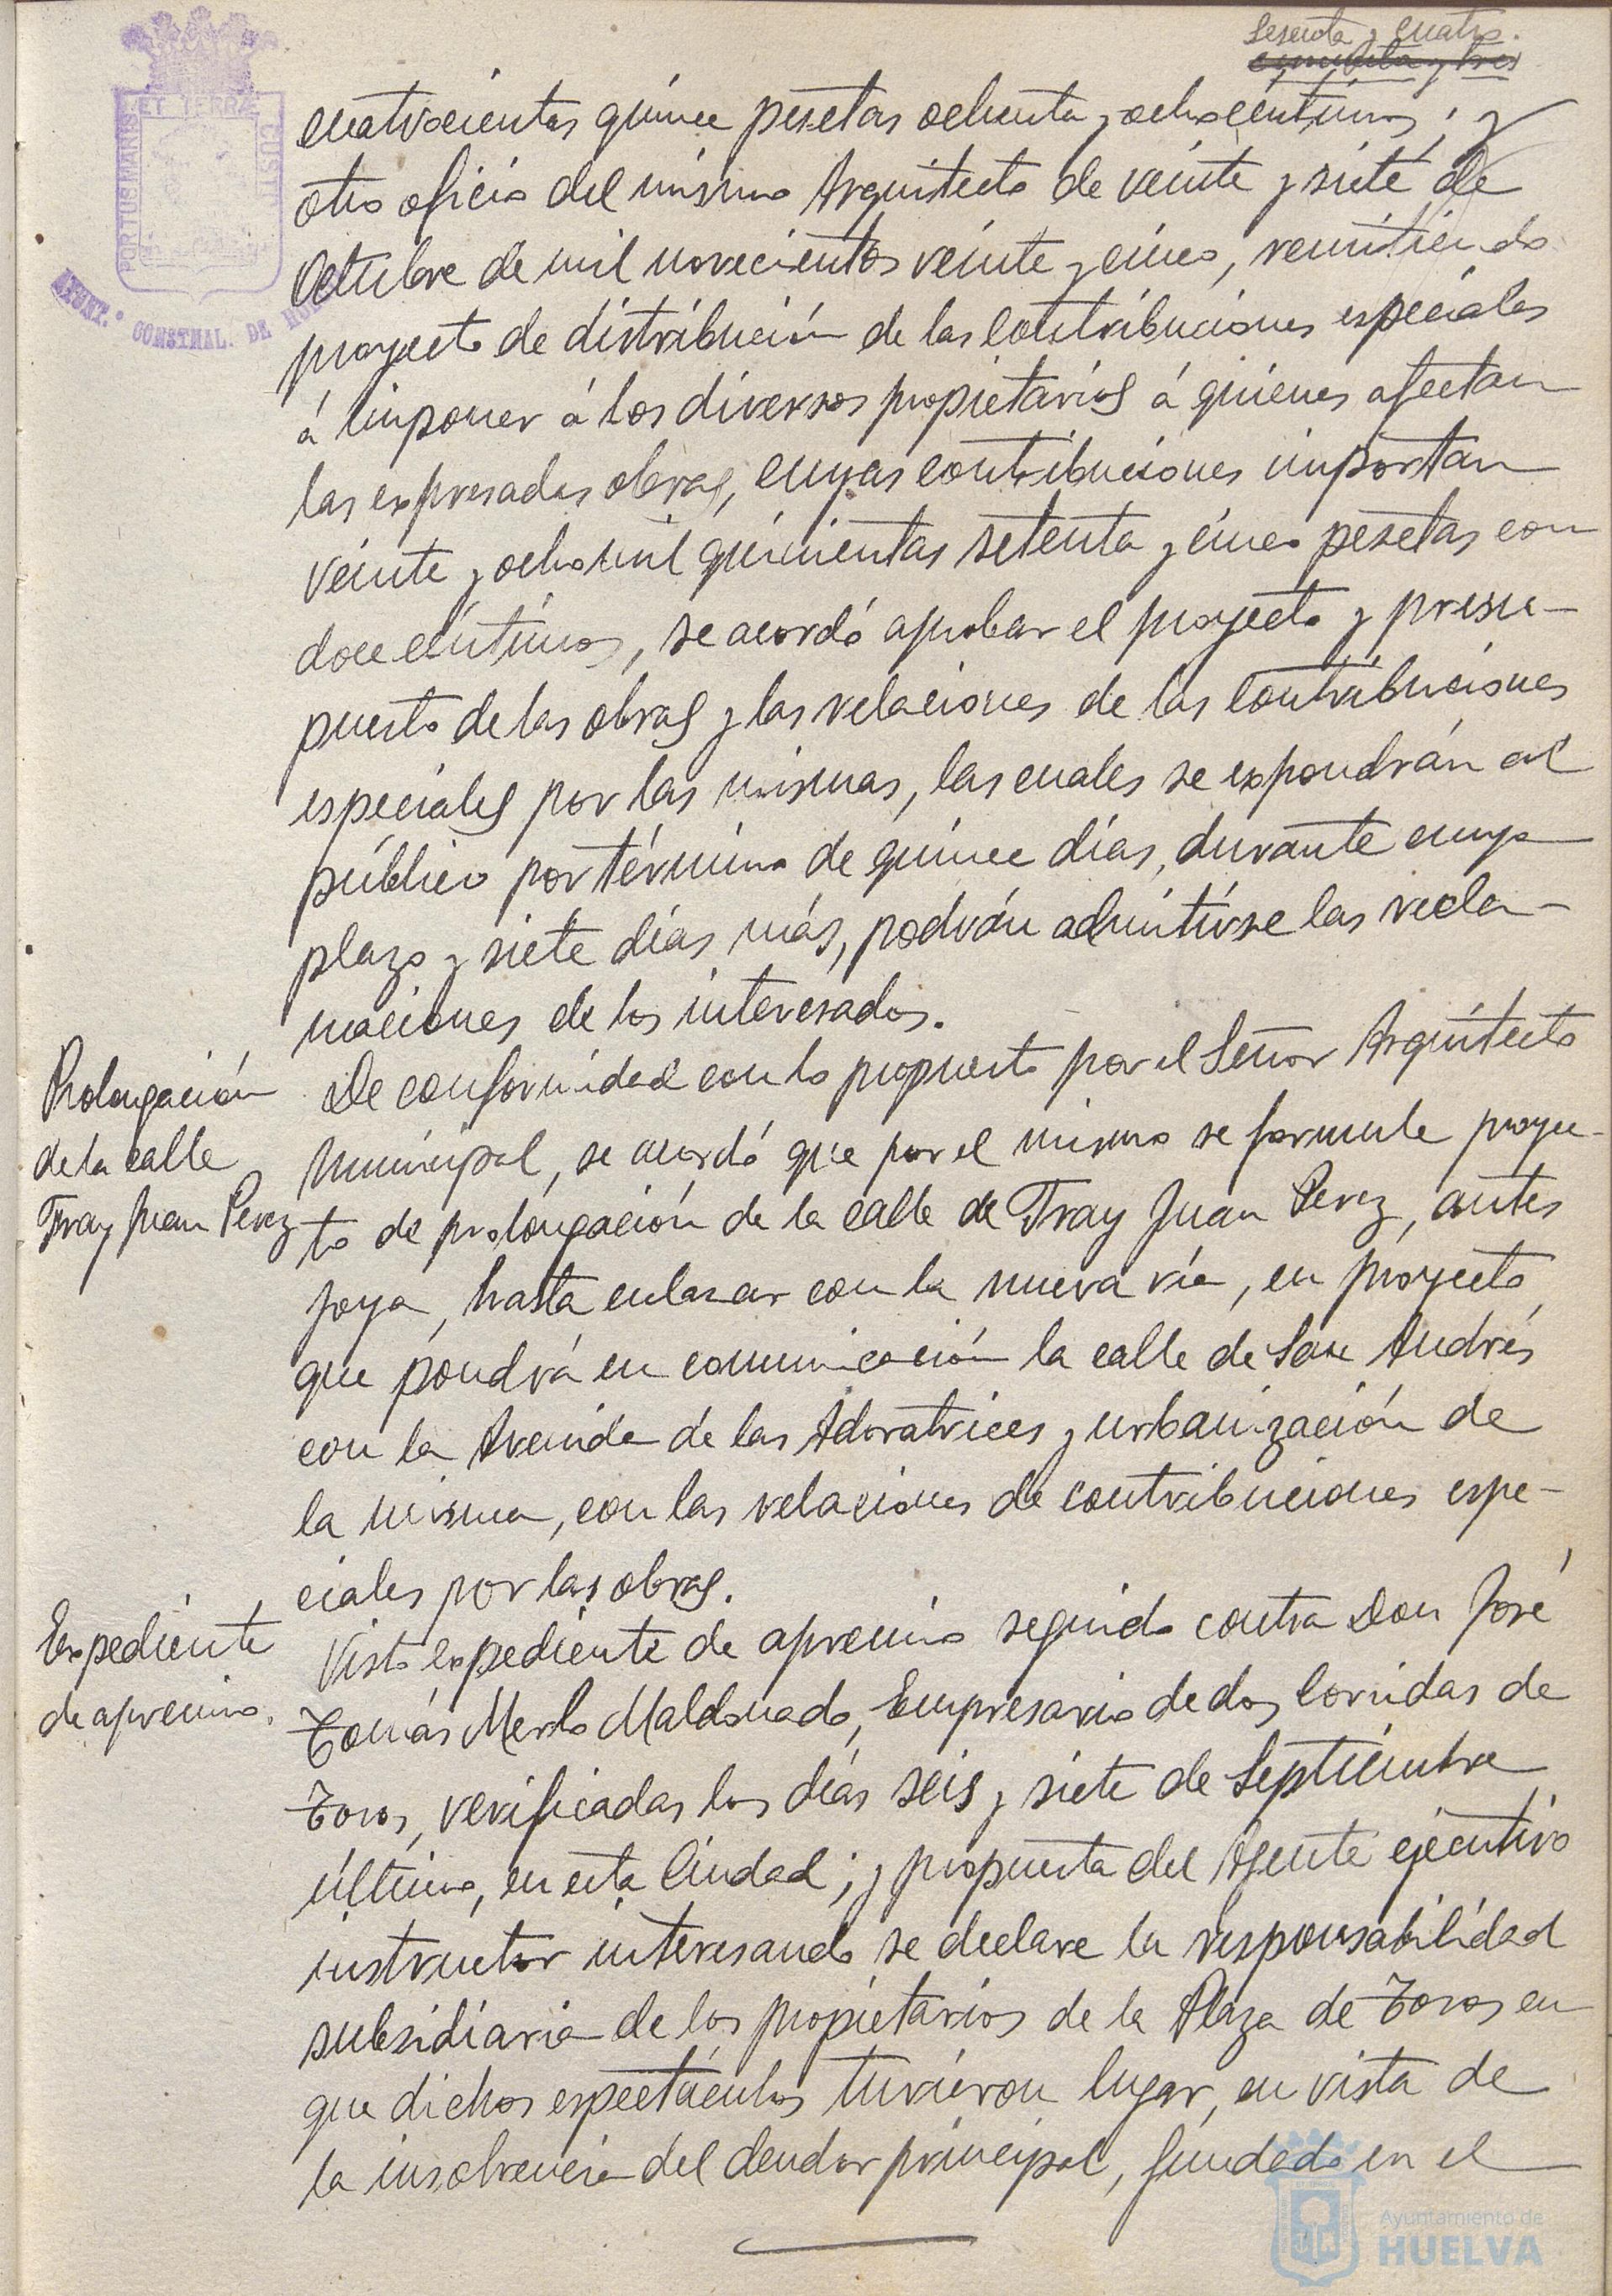 Sesenta y cuatro.
cincuenta y tres
PORTUS MARIS ET TERRÆ CUST
AYUNT.º CONSTNAL. DE HU
cuatrocientas quince pesetas ochenta y ocho céntimos; y
otro oficio del mismo Arquitecto de veinte y siete de
Octubre de mil novecientos veinte y cinco, remitiendo
proyecto de distribución de las Contribuciones especiales
á imponer á los diversos propietarios á quienes afectan
las expresadas obras, cuyas contribuciones importan
veinte y ocho mil quinientas setenta y cinco pesetas con
doce céntimos, se acordó aprobar el proyecto y presu-
puesto de las obras y las relaciones de las Contribuciones
especiales por las mismas, las cuales se expondrán al
público por término de quince días, durante cuyo
plazo y siete días más, podrán admitirse las recla-
maciones de los interesados.
Prolongación
de la calle
Fray Juan Perez
De conformidad con lo propuesto por el Señor Arquitecto
Municipal, se acordó que por el mismo se formule proyec-
to de prolongación de la calle de Fray Juan Perez, antes
Joya, hasta enlazar con la nueva vía, en proyecto,
que pondrá en comunicación la calle de San Andrés
con la Avenida de las Adoratrices y urbanización de
la misma, con las relaciones de contribuciones espe-
ciales por las obras.
Expediente
de apremio.
Visto expediente de apremio seguido contra Don José
Tomás Merlo Maldonado, Empresario de dos Corridas de
Toros, verificadas los días seis y siete de Septiembre
último, en esta Ciudad; y propuesta del Agente ejecutivo
instructor interesando se declare la responsabilidad
subsidiaria de los propietarios de la Plaza de Toros en
que dichos espectáculos tuvieron lugar, en vista de
la insolvencia del deudor principal, fundado en el
Ayuntamiento de
HUELVA